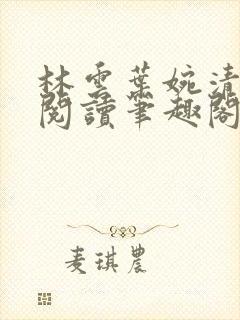 林雲葉婉清
閱讀筆趣閣
麦琪農